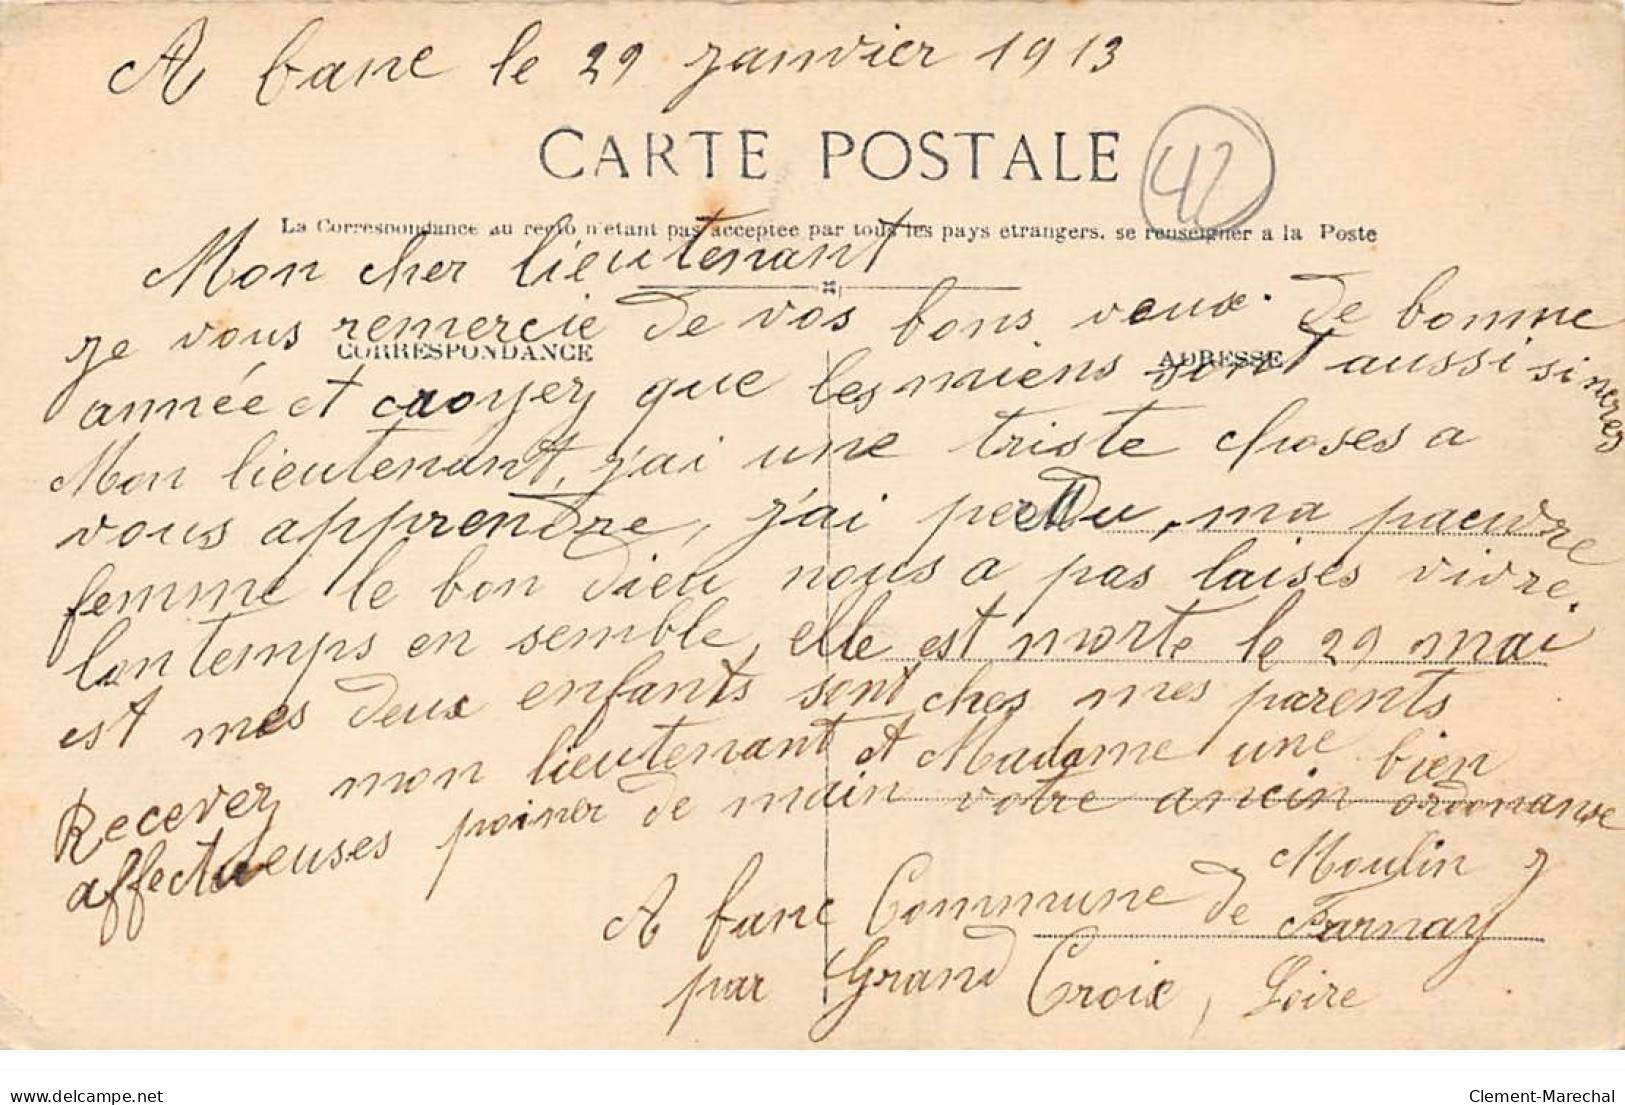 A bane le 29 janvier 1913
CARTE POSTALE
42
La Correspondance au recto n'étant pas acceptée par tous les pays étrangers, se renseigner a la Poste
Mon cher lieutenant
je vous remercie de vos bons veux de bonne
CORRESPONDANCE
ADRESSE
année et croyez que les miens sont aussi sinceres
Mon lieutenant, j'ai une triste choses a
vous apprendre, j'ai perdu, ma pauvre
femme le bon dieu nous a pas laisés vivre.
lontemps en semble, elle est morte le 29 mai
est mes deux enfants sont ches mes parents
Recevez mon lieutenant et Madame une bien
affectueuses poiner de main votre ancin ordonanse
Moulin J
A bane Commune de Farnay
par Grand Croix, Loire
delcampe.net
Clement-Marechal